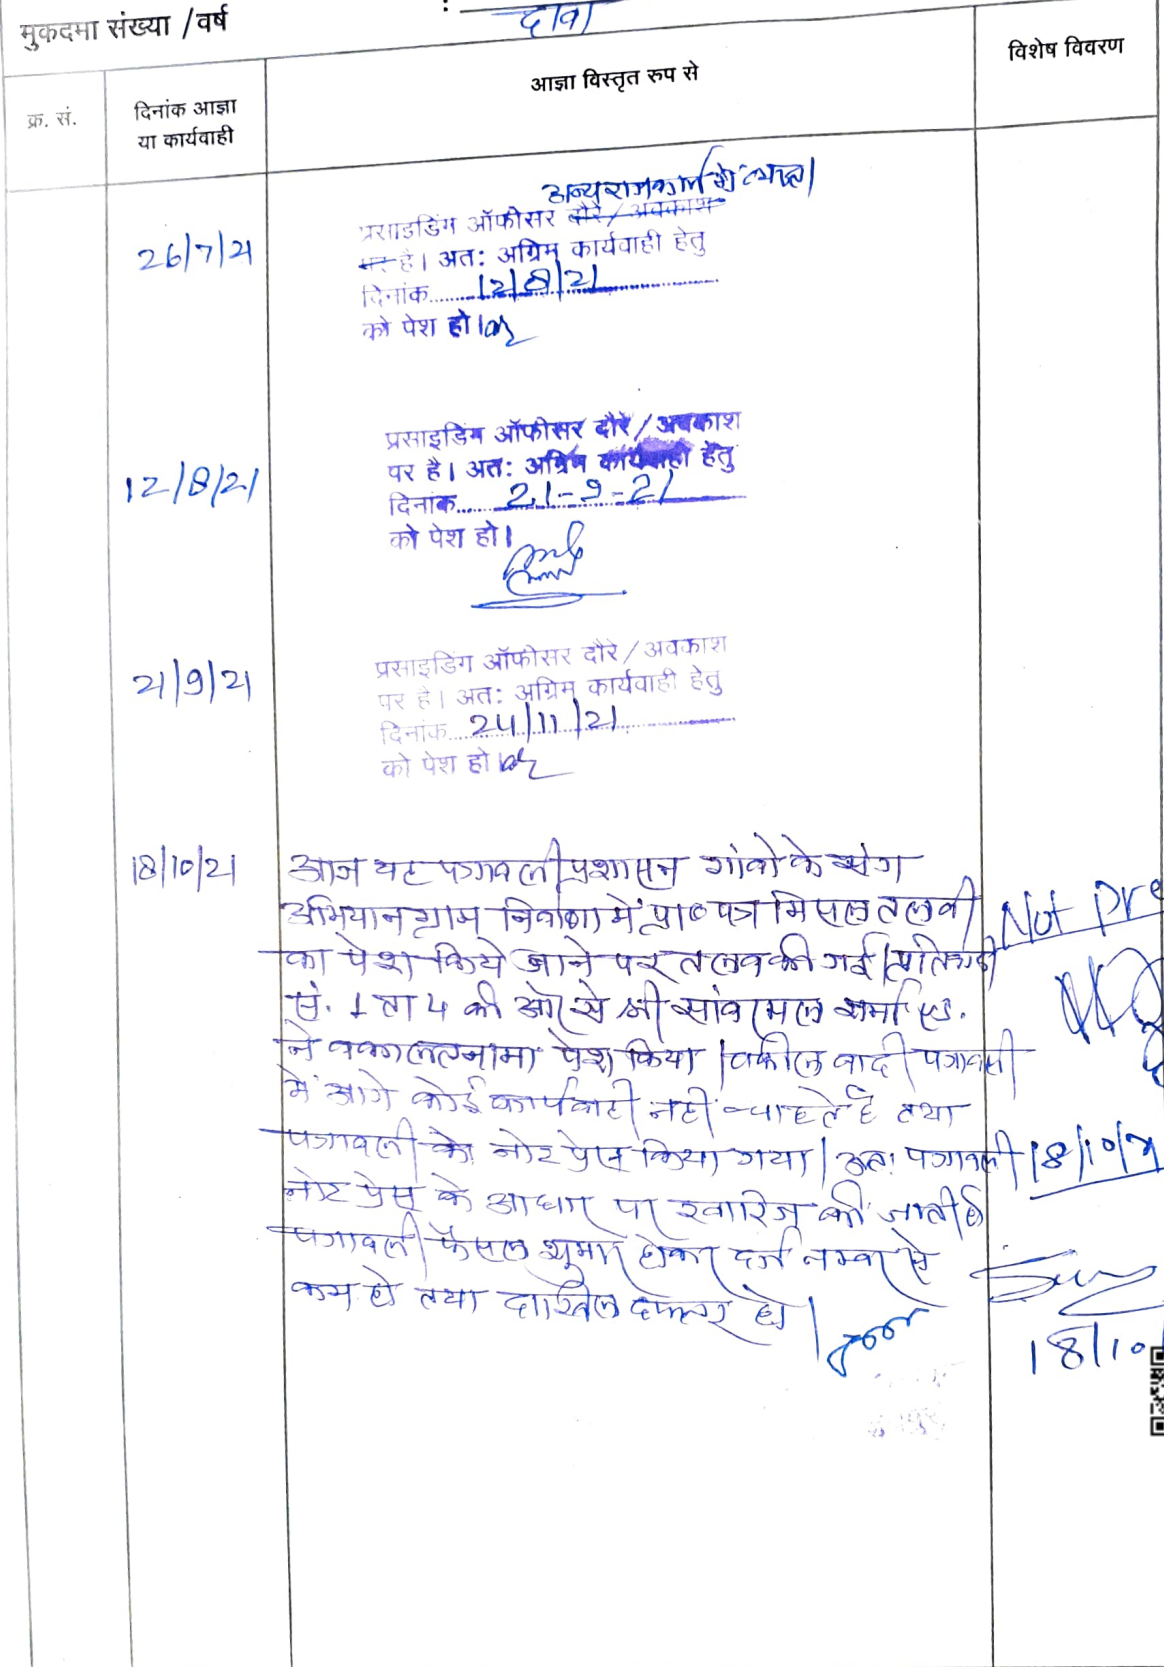 मुकदमा संख्या /वर्ष : दावा
क्र. सं.
दिनांक आज्ञा
या कार्यवाही
आज्ञा विस्तृत रुप से
विशेष विवरण
26/7/21
अन्य राजकार्य में व्यस्त
प्रसाइडिंग ऑफीसर दौरे / अवकाश
पर है। अतः अग्रिम कार्यवाही हेतु
दिनांक 12/8/21
को पेश हो।
12/8/21
प्रसाइडिंग ऑफीसर दौरे / अवकाश
पर है। अतः अग्रिम कार्यवाही हेतु
दिनांक 21-9-21
को पेश हो।
21/9/21
प्रसाइडिंग ऑफीसर दौरे / अवकाश
पर है। अतः अग्रिम कार्यवाही हेतु
दिनांक 24/11/21
को पेश हो
18/10/21
आज यह पत्रावली प्रशासन गांवो के संग
अभियान ग्राम में प्रा० पत्र मिसल तलबी
का पेश किये जाने पर तलब की गई।
सं. 1 ता 4 की ओर से श्री सांवरमल शर्मा एड.
ने वकालतनामा पेश किया। वकील वादी पत्रावली
में आगे कोई कार्यवाही नहीं चाहते है तथा
पत्रावली को नोट प्रेस किया गया। अतः पत्रावली
नोट प्रेस के आधार पर खारिज की जाती है
पत्रावली फैसल शुमार होकर दर्ज नम्बर से
कम हो तथा दाखिल दफ्तर हो।
Not Pre
18/10/2
18/10